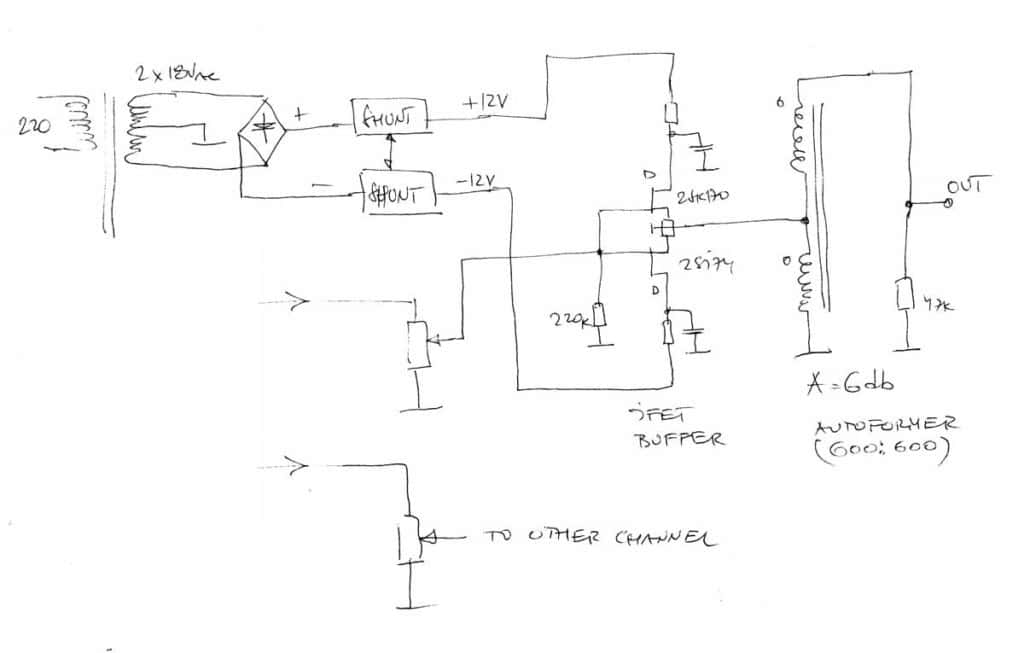 2 x 18VAC
220
+
SHUNT
+12V
-
SHUNT
-12V
D
2SK170
2SJ74
D
220K
OUT
47K
A=6db
JFET
BUFFER
AUTOFORMER
(600:600)
TO OTHER CHANNEL